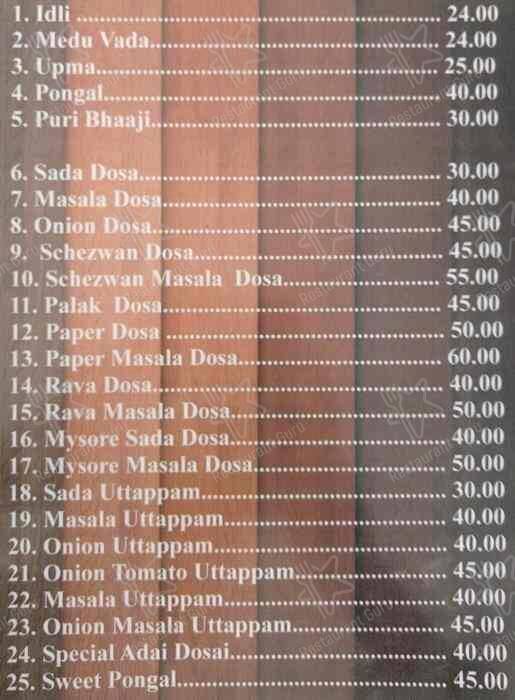 1. Idli ........................................................ 24.00
2. Medu Vada............................................. 24.00
3. Upma..................................................... 25.00
4. Pongal.................................................... 40.00
5. Puri Bhaaji............................................. 30.00
6. Sada Dosa............................................... 30.00
7. Masala Dosa........................................... 40.00
8. Onion Dosa............................................. 45.00
9. Schezwan Dosa...................................... 45.00
10. Schezwan Masala Dosa........................ 55.00
11. Palak Dosa........................................... 45.00
12. Paper Dosa .......................................... 50.00
13. Paper Masala Dosa............................... 60.00
14. Rava Dosa............................................ 40.00
15. Rava Masala Dosa................................ 50.00
16. Mysore Sada Dosa................................ 40.00
17. Mysore Masala Dosa............................ 50.00
18. Sada Uttappam.................................... 30.00
19. Masala Uttappam................................. 40.00
20. Onion Uttappam................................... 40.00
21. Onion Tomato Uttappam...................... 45.00
22. Masala Uttappam................................. 40.00
23. Onion Masala Uttappam....................... 45.00
24. Special Adai Dosai................................ 40.00
25. Sweet Pongal........................................ 45.00
Restaurant Guru